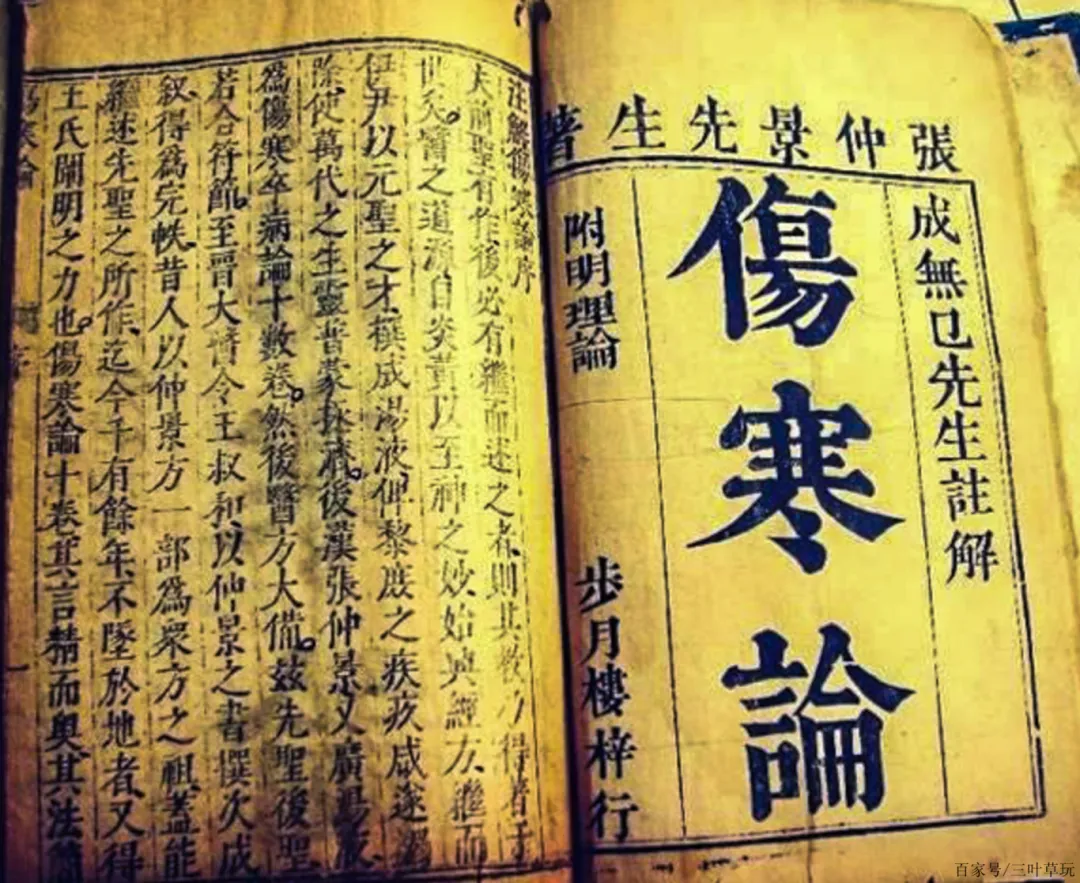 張仲景先生著
成無已先生註解
傷寒論
附明理論
步月樓梓行
注解傷寒論序
夫前聖有作後必有繼而述之者則其教乃得著于
世矣。醫之道源自炎黃以至神之妙始興經方繼而
伊尹以元聖之才撰成湯液俾黎庶之疾疢咸遂蠲
除、使萬代之生靈普蒙拯濟。後漢張仲景又廣湯液
爲傷寒卒病論十數卷。然後醫方大備。玆先聖後聖
若合符節。至晉大醫令王叔和、以仲景之書撰次成
叙、得爲完帙、昔人以仲景方一部爲衆方之祖、蓋能
繼述先聖之所作、迄今千有餘年、不墜於地者、又得
王氏闡明之力也。傷寒論十卷其言精而奧、其法簡
傷寒論
序
一
百家号/三叶草玩